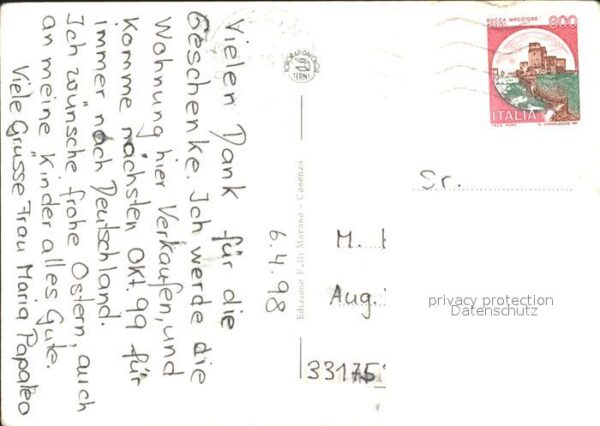 Vielen Dank für die
Geschenke. Ich werde die
Wohnung hier Verkaufen, und
Komme nächsten OKt. 99 für
immer nach Deutschland.
Ich wünsche frohe Ostern, auch
an meine Kinder alles Gute.
Viele Grüsse Frau Maria Papaleo
6.4.98
Edizione F.lli Marano - Cosenza
TERNI
ROCCA MAGGIORE
ASSISI
800
ITALIA
Sr.
M.
Aug.
33175
privacy protection
Datenschutz